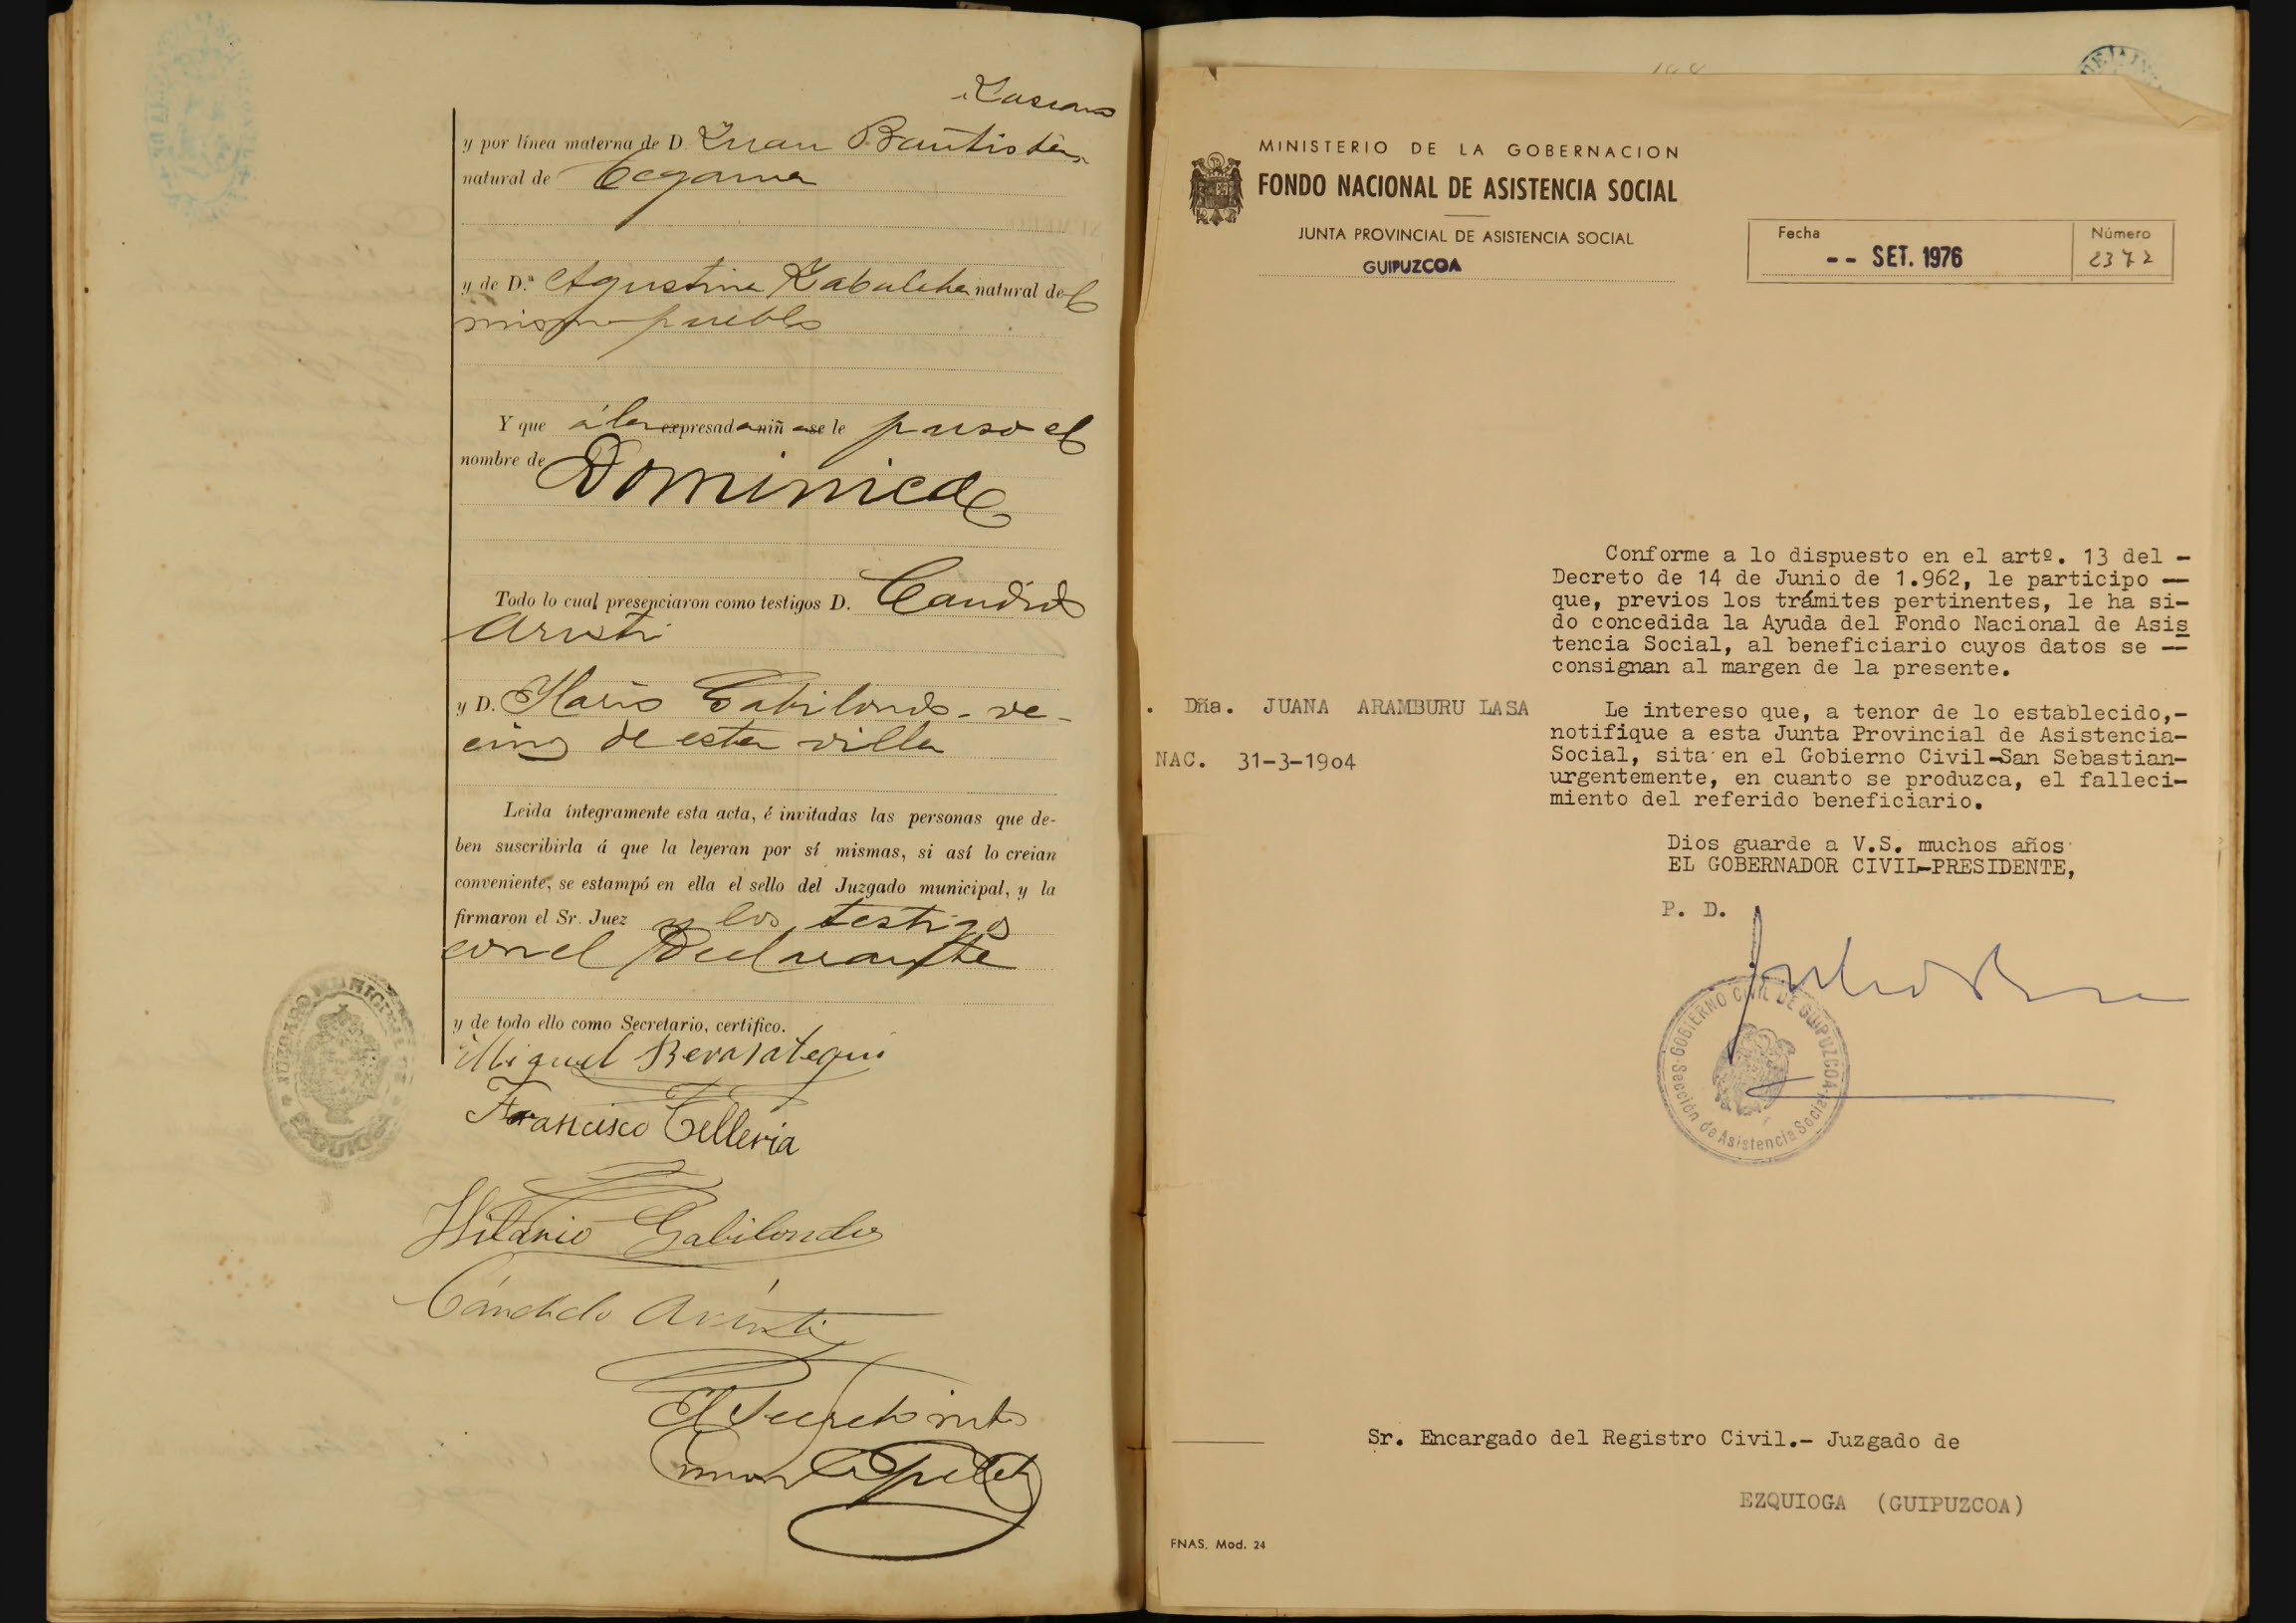 y por línea materna de D. Juan Bautista
natural de Cegama
y de D.ª Agustina natural del
mismo pueblo
Y que á la expresada niña se le puso el
nombre de Dominica
Todo lo cual presenciaron como testigos D. Candido
Aristi
y D. Gabilondo - ve-
cinos de esta villa
Leida íntegramente esta acta, é invitadas las personas que de-
ben suscribirla á que la leyeran por sí mismas, si así lo creian
conveniente, se estampó en ella el sello del Juzgado municipal, y la
firmaron el Sr. Juez y los testigos
con el Declarante
y de todo ello como Secretario, certifico.
Miguel Berasategui
Francisco Telleria
Hilario Gabilondo
Cándido Aristi
El Secretario
JUZGADO MUNICIPAL DE
EZQUIOGA
MINISTERIO DE LA GOBERNACION
FONDO NACIONAL DE ASISTENCIA SOCIAL
JUNTA PROVINCIAL DE ASISTENCIA SOCIAL
GUIPUZCOA
Fecha
-- SET. 1976
Número
2372
Conforme a lo dispuesto en el artº. 13 del -
Decreto de 14 de Junio de 1.962, le participo --
que, previos los trámites pertinentes, le ha si-
do concedida la Ayuda del Fondo Nacional de Asis
tencia Social, al beneficiario cuyos datos se --
consignan al margen de la presente.
. Dña. JUANA ARAMBURU LASA
NAC. 31-3-1904
Le intereso que, a tenor de lo establecido,-
notifique a esta Junta Provincial de Asistencia-
Social, sita en el Gobierno Civil-San Sebastian-
urgentemente, en cuanto se produzca, el falleci-
miento del referido beneficiario.
Dios guarde a V.S. muchos años
EL GOBERNADOR CIVIL-PRESIDENTE,
P. D.
GOBIERNO CIVIL DE GUIPUZCOA
Sección de Asistencia Social
Sr. Encargado del Registro Civil.- Juzgado de
EZQUIOGA (GUIPUZCOA)
FNAS. Mod. 24